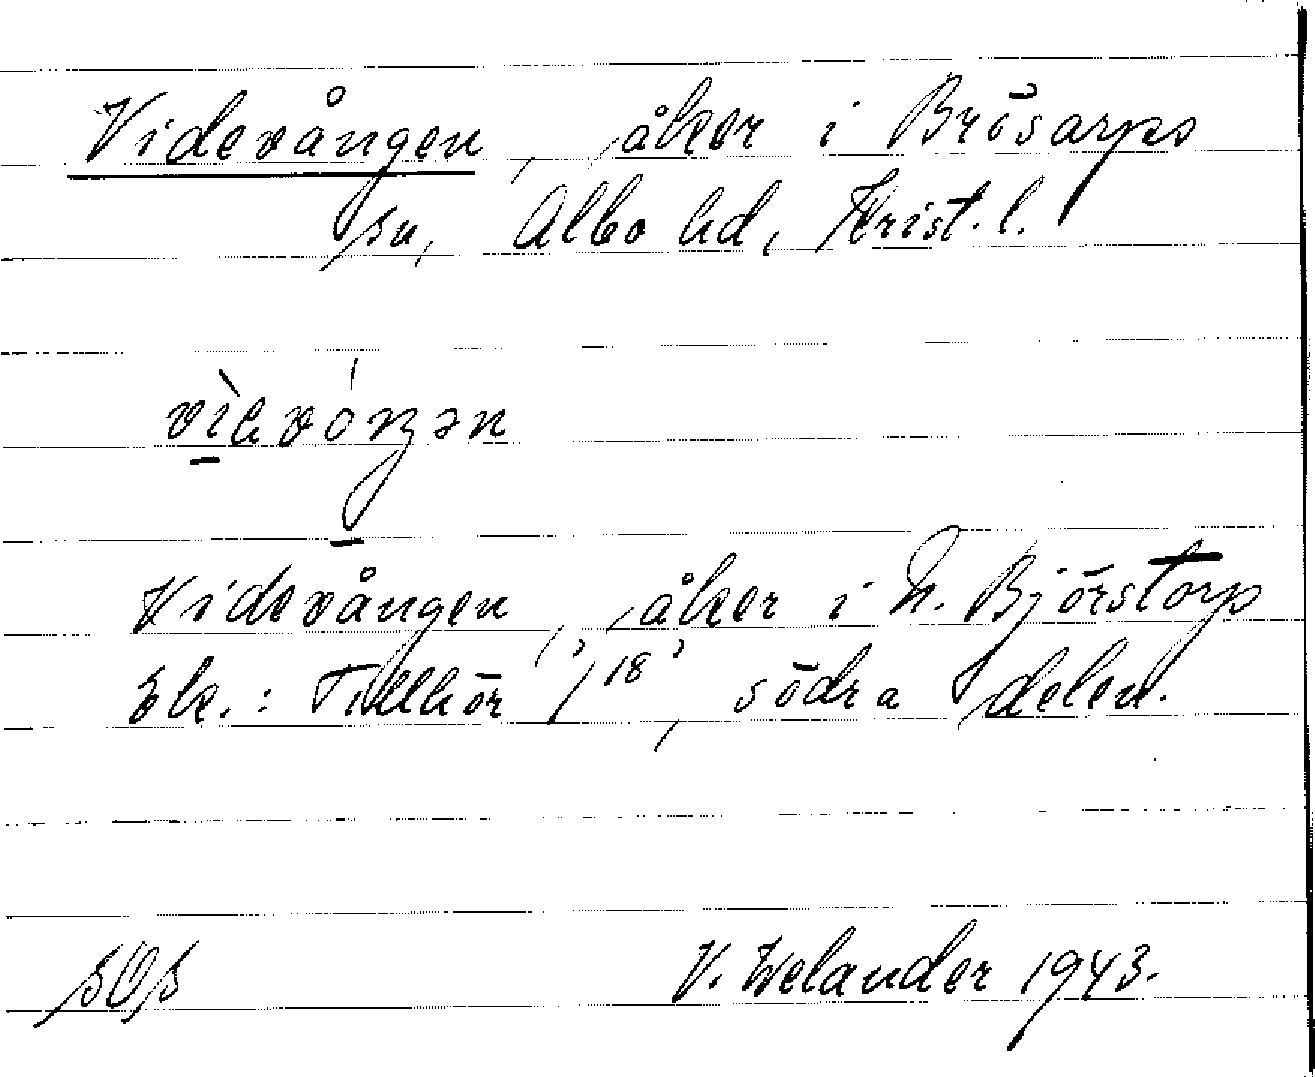 Videvången, åker i Brösarps
sn, Albo hd, Krist. l.
Videvången, åker i N. Björstorp
Ek.: Tillhör 1/18, södra delen.
SOS V. Welander 1943.